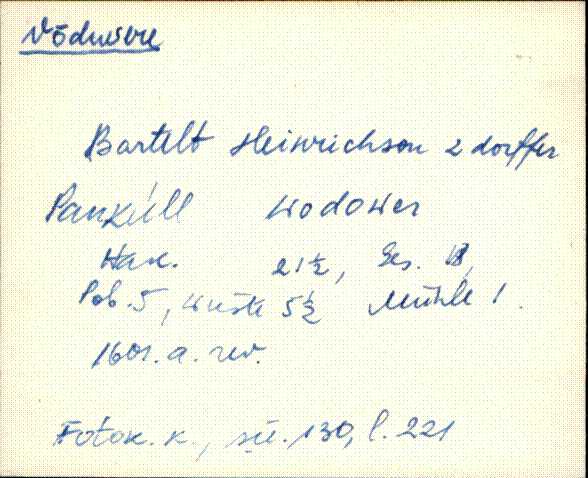 Võduvere
Bartelt Heinrichson 2 dörffer
Panküll Wodower
Hak. 21½, Ges. 18,
Pob. 5, wüste 5½ Mühle 1.
1601. a. rev.
Fotok. k., sü. 130, l. 221